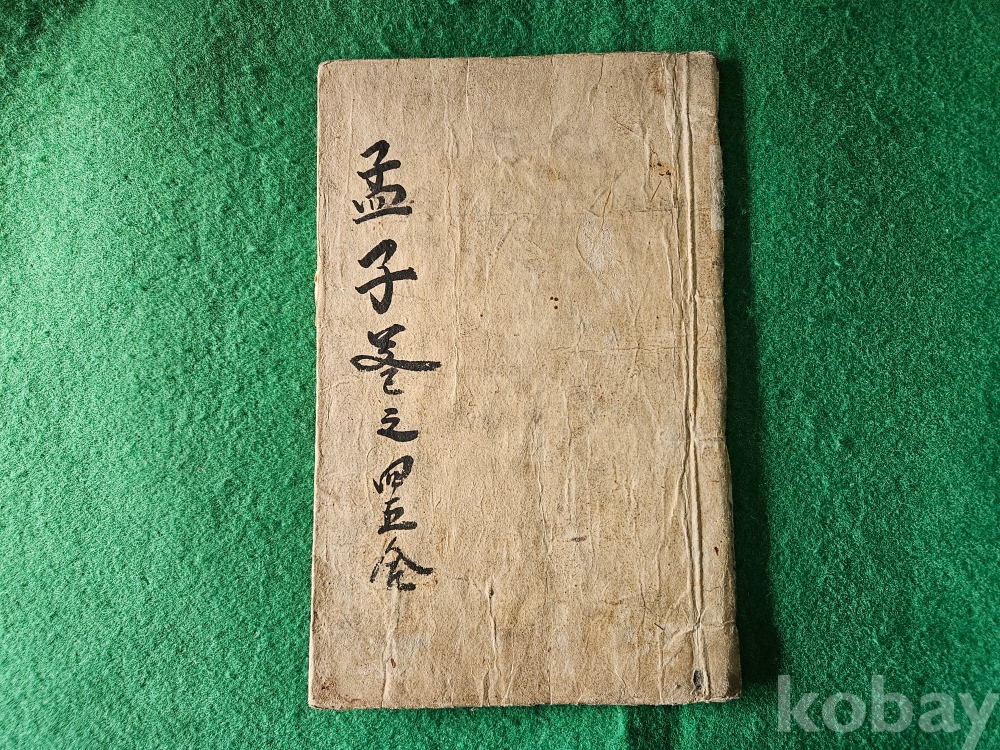 孟子卷之四五全
kobay